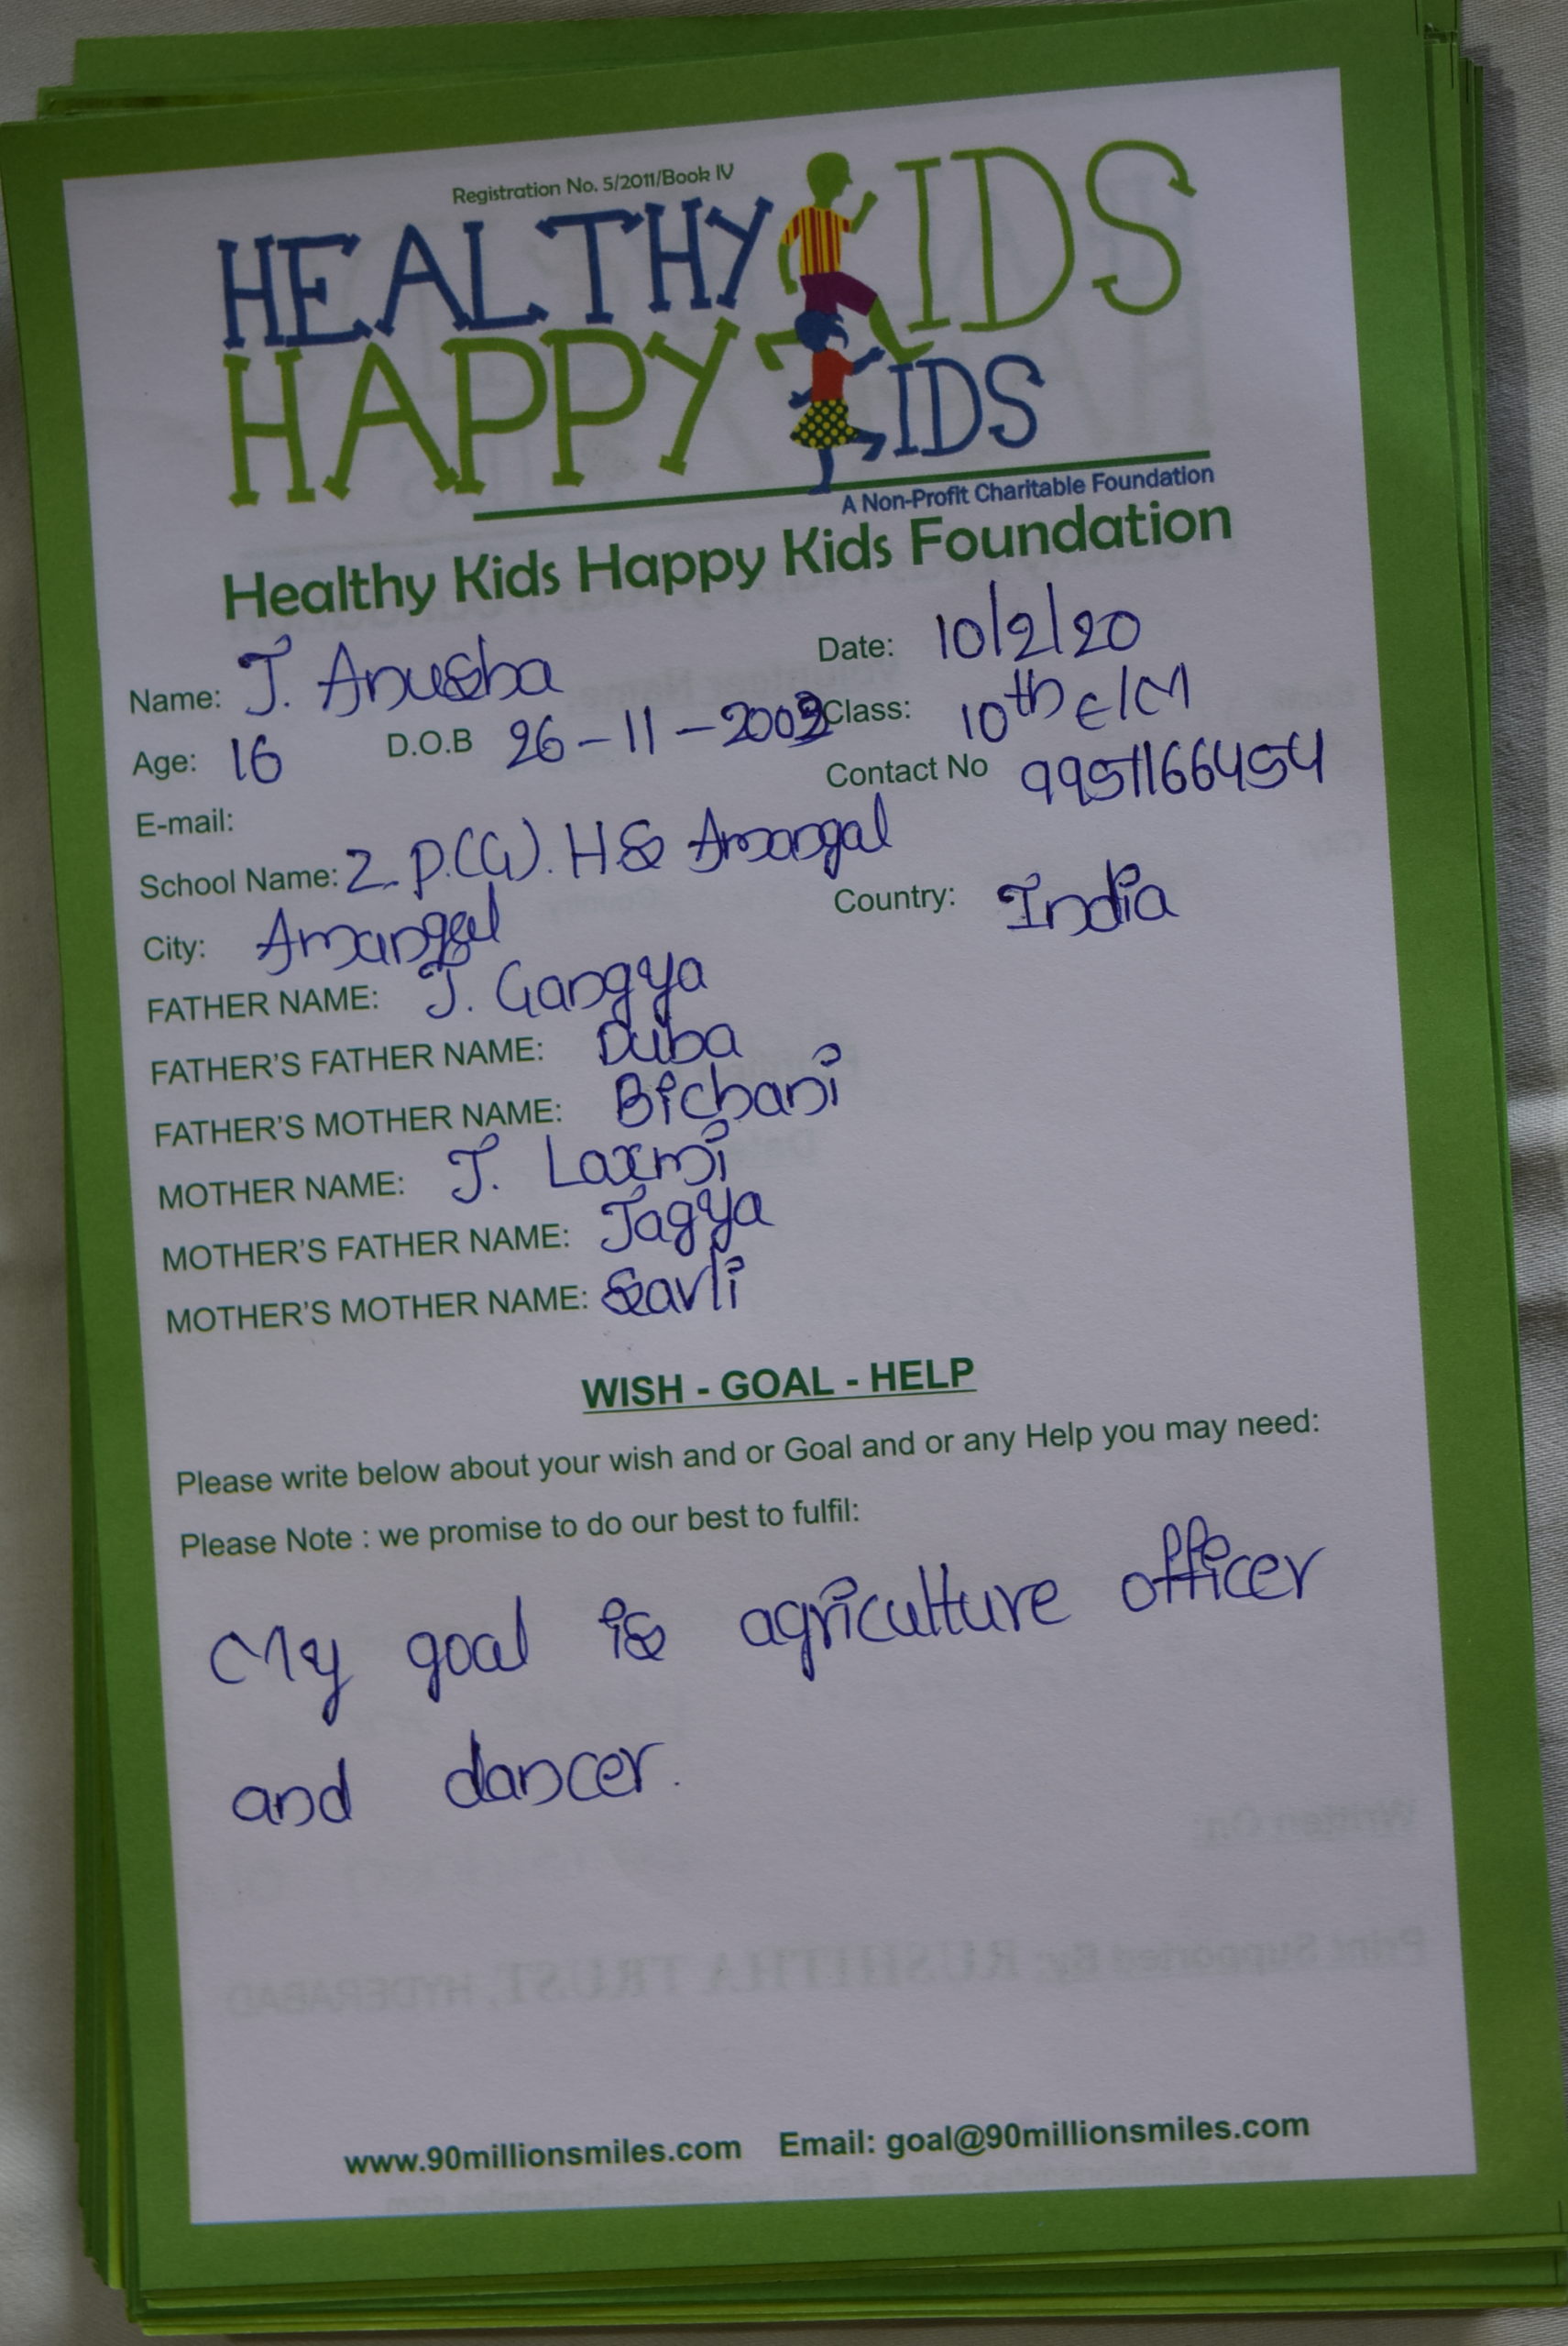 Registration No. 5/2011/Book IV
HEALTHY KIDS
HAPPY KIDS
A Non-Profit Charitable Foundation
Healthy Kids Happy Kids Foundation
Name: J. Anusha Date: 10/2/20
Age: 16 D.O.B 26-11-2003 Class: 10th E/M
E-mail: Contact No 9951166454
School Name: Z.P.(G). HS Amangal
City: Amangal Country: India
FATHER NAME: J. Gangya
FATHER'S FATHER NAME: Duba
FATHER'S MOTHER NAME: Bichani
MOTHER NAME: J. Laxmi
MOTHER'S FATHER NAME: Jagya
MOTHER'S MOTHER NAME: Savli
WISH - GOAL - HELP
Please write below about your wish and or Goal and or any Help you may need:
Please Note : we promise to do our best to fulfil:
My goal is agriculture officer
and dancer.
Written On:
Print Supported By: RUSHITHA TRUST, HYDERABAD
www.90millionsmiles.com Email: goal@90millionsmiles.com